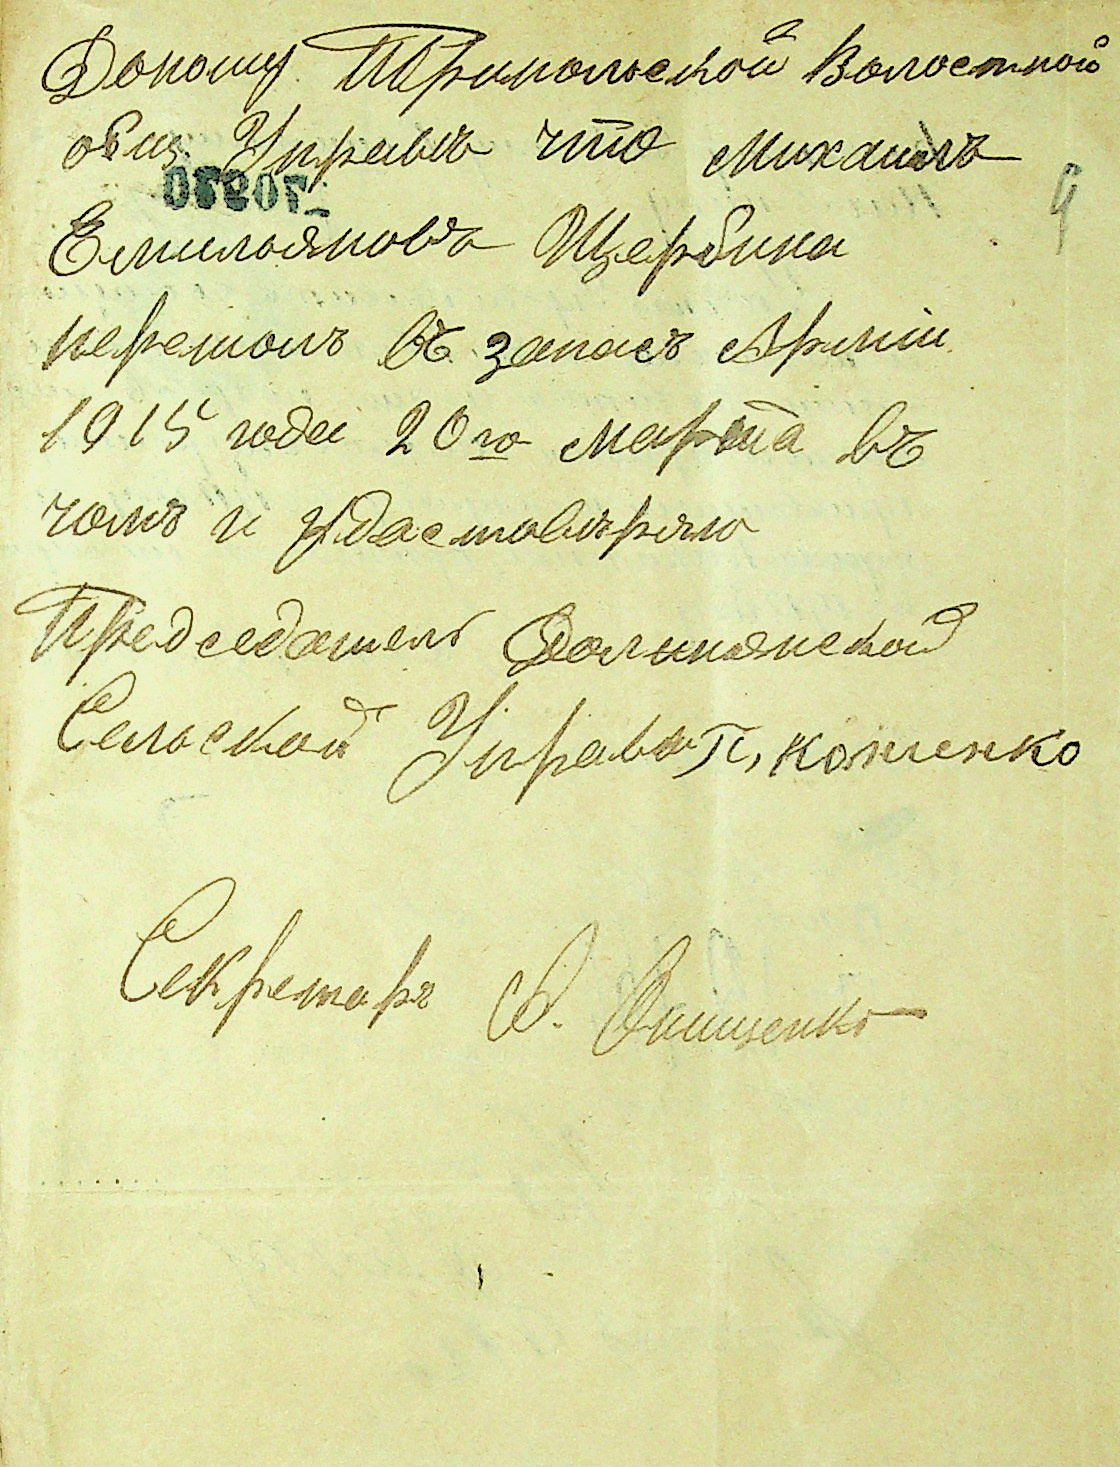 Доношу Трипольской Волостной
общ Управѣ что Михаилъ
Емильяновъ Щербина
перешолъ въ запасъ Арміи
1915 года 20го марта въ
чомъ и удастовѣряю
Председатель Долинянской
Сельской Управы П, кожченко
Секретарь Ф. Онищенко
9